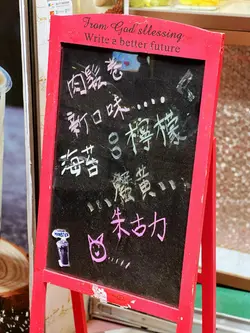 From God sBlessing
Write a better future
肉鬆卷
新口味....
海苔 檸檬
...蟹黃....
朱古力